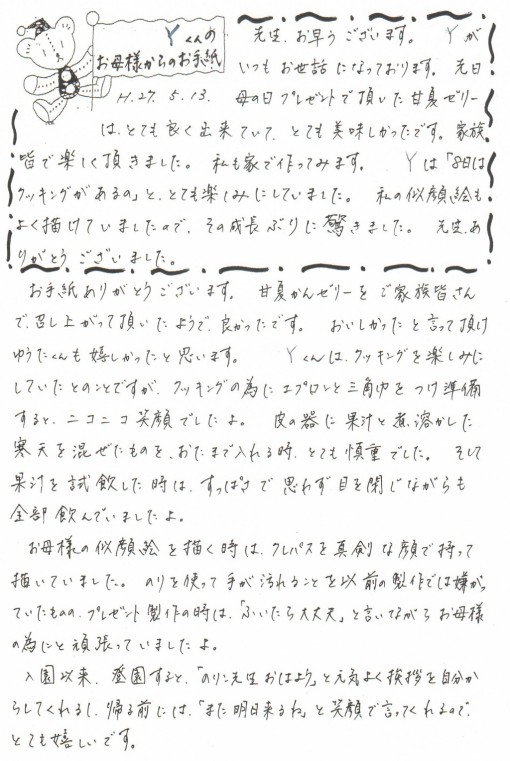 Yくんの
お母様からのお手紙
H.27. 5. 13.
先生、お早うございます。 Yが
いつもお世話になっております。 先日
母の日プレゼントで頂いた甘夏ゼリー
は、とても良く出来ていて、とても美味しかったです。家族
皆で楽しく頂きました。 私も家で作ってみます。 Yは「8日は
クッキングがあるの」と、とても楽しみにしていました。 私の似顔絵も
よく描けていましたので、その成長ぶりに驚きました。 先生、あ
りがとうございました。
お手紙ありがとうございます。 甘夏かんゼリーをご家族皆さん
で、召し上がって頂いたようで、良かったです。 おいしかったと言って頂け
ゆうたくんも嬉しかったと思います。 Yくんは、クッキングを楽しみに
していたとのことですが、クッキングの為にエプロンと三角巾をつけ準備
すると、ニコニコ笑顔でしたよ。 皮の器に果汁と煮溶かした
寒天を混ぜたものを、おたまで入れる時、とても慎重でした。 そして
果汁を試飲した時は、すっぱさで思わず目を閉じながらも
全部飲んでいましたよ。
お母様の似顔絵を描く時は、クレパスを真剣な顔で持って
描いていました。 のりを使って手が汚れることを以前の製作では嫌がっ
ていたものの、プレゼント製作の時は、「ふいたら大丈夫」と言いながらお母様
の為にと頑張っていましたよ。
入園以来、登園すると、「のりこ先生おはよう」と元気よく挨拶を自分か
らしてくれるし、帰る前には、「また明日来るね」と笑顔で言ってくれるので、
とても嬉しいです。